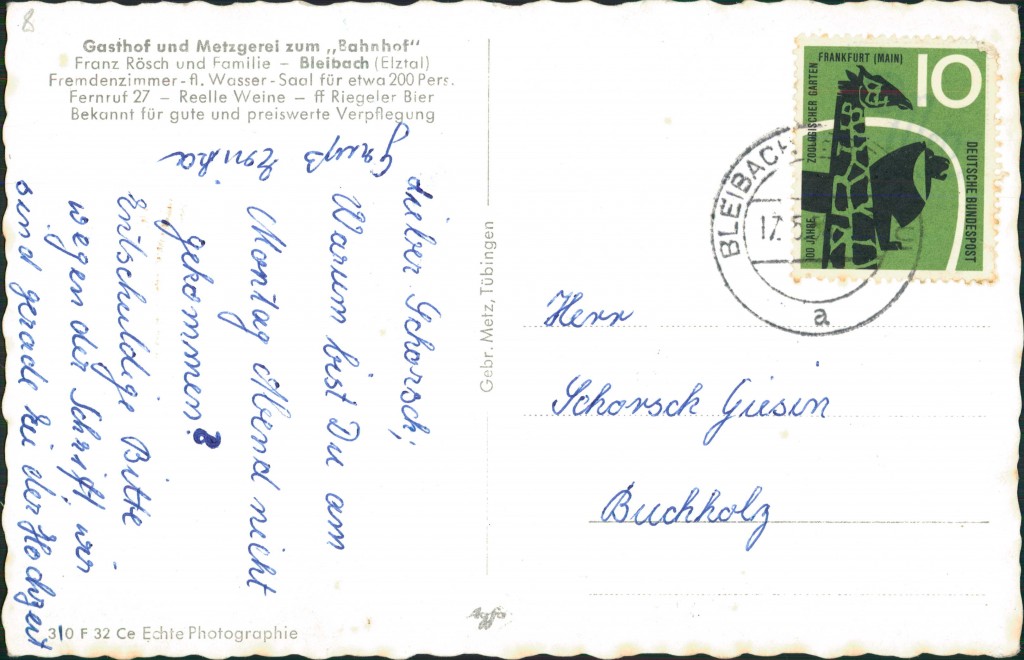 8
Gasthof und Metzgerei zum „Bahnhof“
Franz Rösch und Familie – Bleibach (Elztal)
Fremdenzimmer - fl. Wasser - Saal für etwa 200 Pers.
Fernruf 27 – Reelle Weine – ff Riegeler Bier
Bekannt für gute und preiswerte Verpflegung
Lieber Schorsch,
Warum bist Du am
Montag Abend nicht
gekommen?
Entschuldige Bitte
wegen der Schrift, wir
sind gerade bei der Hochzeit
Gruß
Gebr. Metz, Tübingen
310 F 32 Ce Echte Photographie
Agfa
100 JAHRE ZOOLOGISCHER GARTEN
FRANKFURT (MAIN)
10
DEUTSCHE BUNDESPOST
BLEIBACH
17.
a
Herr
Schorsch Giesin
Buchholz